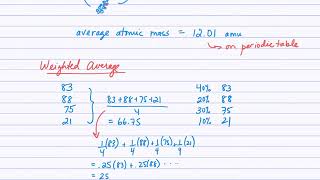 average atomic mass = 12.01 amu
on periodic table
Weighted Average
83
88
75
21
83+88+75+21
4
= 66.75
40% 83
20% 88
30% 75
10% 21
1/4(83) + 1/4(88) + 1/4(75) + 1/4(21)
= .25(83) + .25(88) ...
= 25